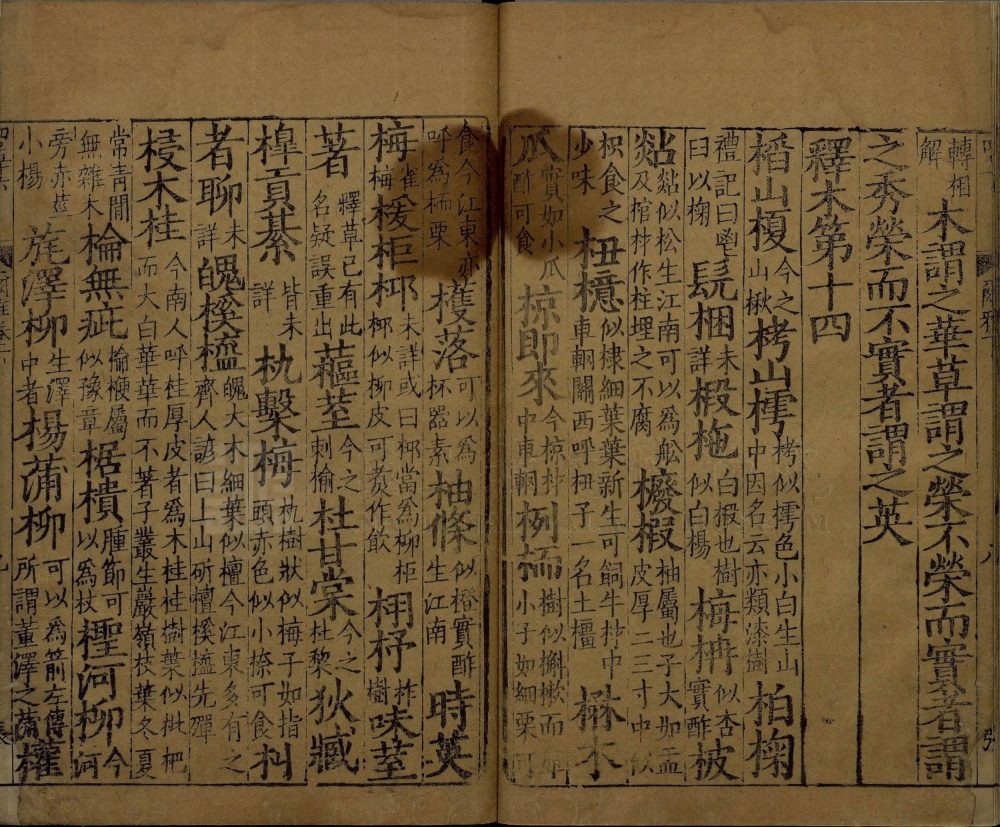 轉相解木謂之華草謂之榮不榮而實者謂
之秀榮而不實者謂之英
釋木第十四
槄山榎今之山楸栲山樗栲似樗色小白生山中因名云亦類漆樹柏椈
禮記曰鬯臼以椈髡梱未詳椴柂白椴也樹似白楊梅柟似杏實酢柀
煔煔似松生江南可以爲舩及棺材作柱埋之不腐櫠椵柚屬也子大如盂皮厚二三寸中似
枳食之少味杻檍似棣細葉葉新生可飼牛材中車輞關西呼杻子一名土橿楙木
瓜實如小瓜酢可食椋即來今椋材中車輞栵栭樹似槲樕而庳小子如細栗可
食今江東亦呼爲栭栗檴落可以爲杯器素柚條似橙實酢生江南時英
梅雀梅楥柜桏未詳或曰桏當爲柳柜桏似柳皮可煑作飲栩杼柞樹味荎
著釋草已有此名疑誤重出藲荎今之刺榆杜甘棠今之杜棃狄臧
槔貢綦皆未詳朹檕梅朹樹狀似梅子如指頭赤色似小㮈可食朻
者聊未詳魄榽橀魄大木細葉似檀今江東多有之齊人諺曰上山斫檀榽橀先殫
梫木桂今南人呼桂厚皮者爲木桂桂樹葉似枇杷而大白華華而不著子叢生巖嶺枝葉冬夏
常青間無雜木棆無疵棆楩屬似豫章椐樻腫節可以爲杖檉河柳今河
旁赤莖小楊旄澤柳生澤中者楊蒲柳可以爲箭左傳所謂董澤之蒲權